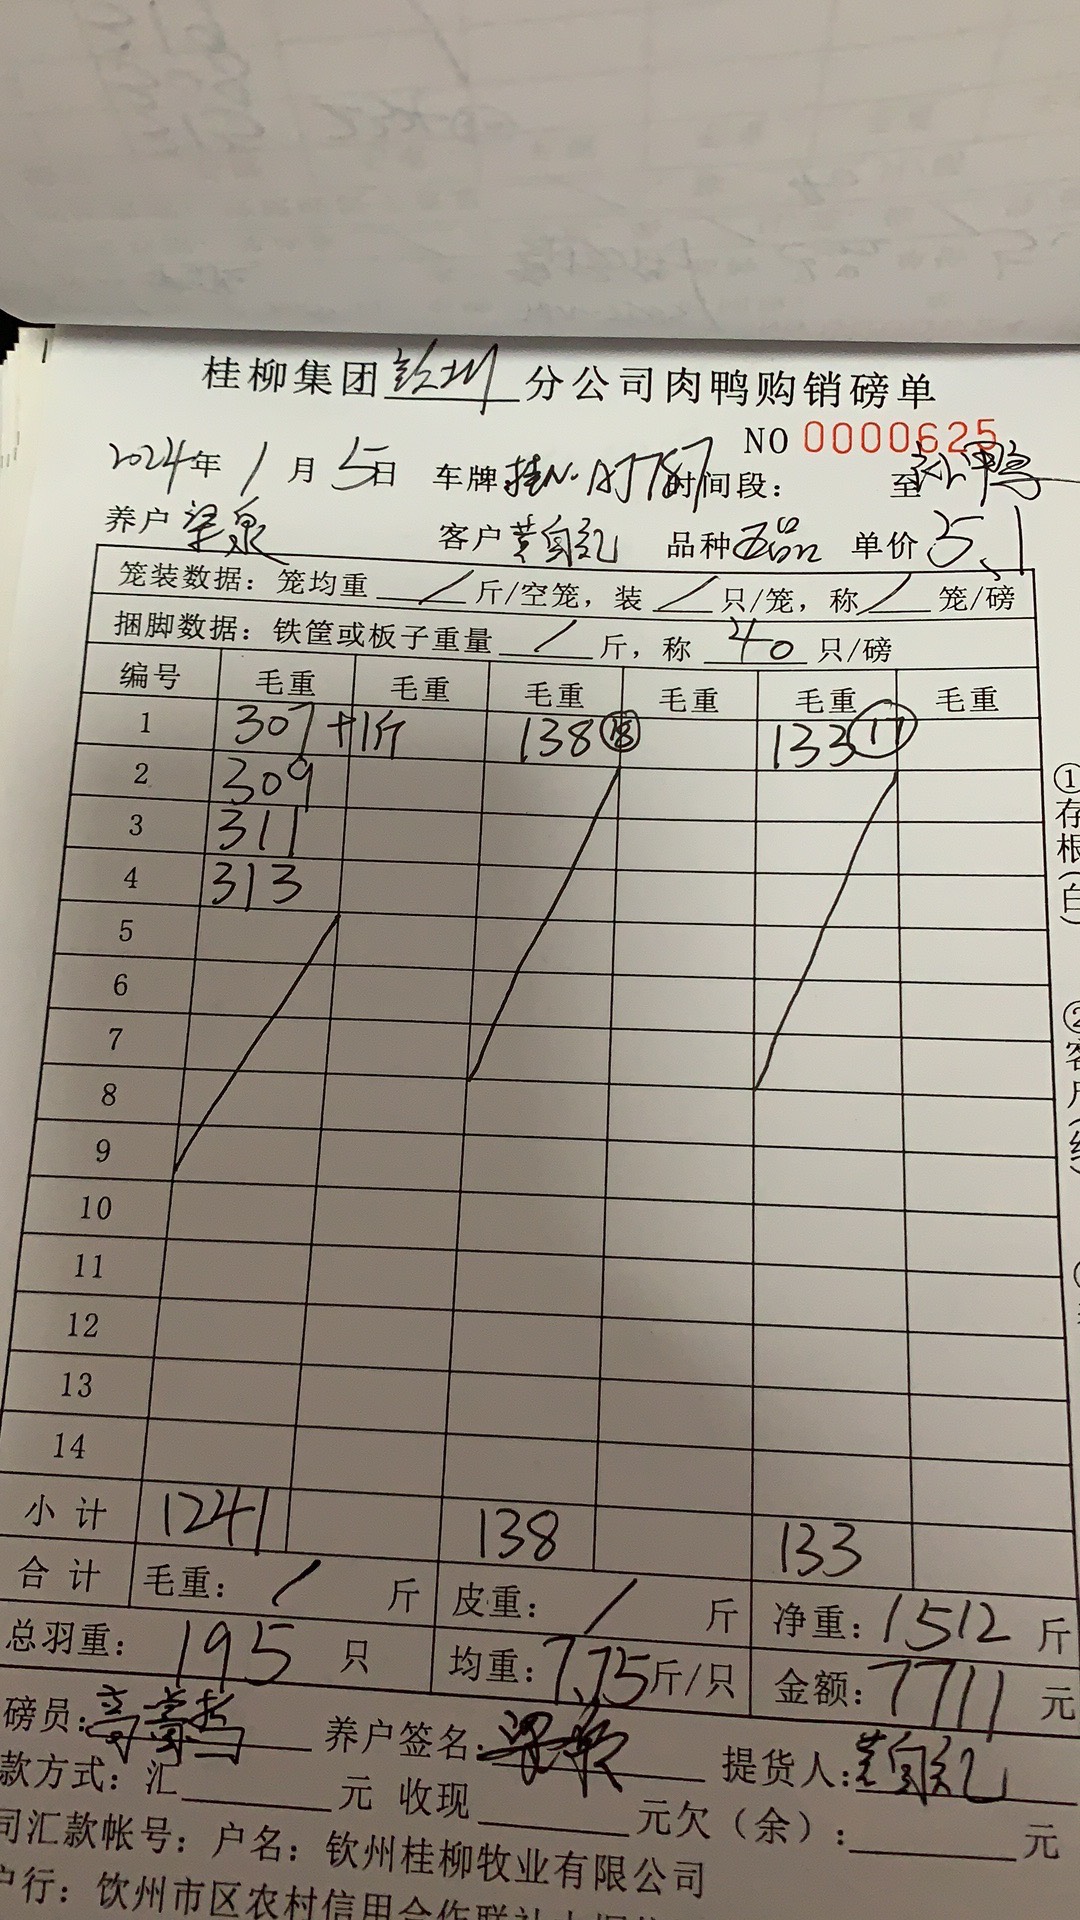 桂柳集团 分公司肉鸭购销磅单
NO 0000625
2024年 1月 5日 车牌 时间段： 至
养户 梁泉 客户 黄自记 品种 单价 5.1
笼装数据：笼均重 / 斤/空笼，装 / 只/笼，称 / 笼/磅
捆脚数据：铁筐或板子重量 / 斤，称 40 只/磅
编号 毛重 毛重 毛重 毛重 毛重 毛重
1 307 +1斤 138 ⑱ 133 ⑰
2 309
3 311
4 313
5
6
7
8
9
10
11
12
13
14
小计 1241 138 133
合计 毛重： / 斤 皮重： / 斤 净重：1512 斤
总羽重： 195 只 均重：7.75斤/只 金额：7711 元
磅员： 养户签名： 提货人：黄自记
款方式：汇 元 收现 元欠（余）： 元
司汇款帐号：户名：钦州桂柳牧业有限公司
户行：钦州市区农村信用合作联社
①存根（白）
②客户（红）